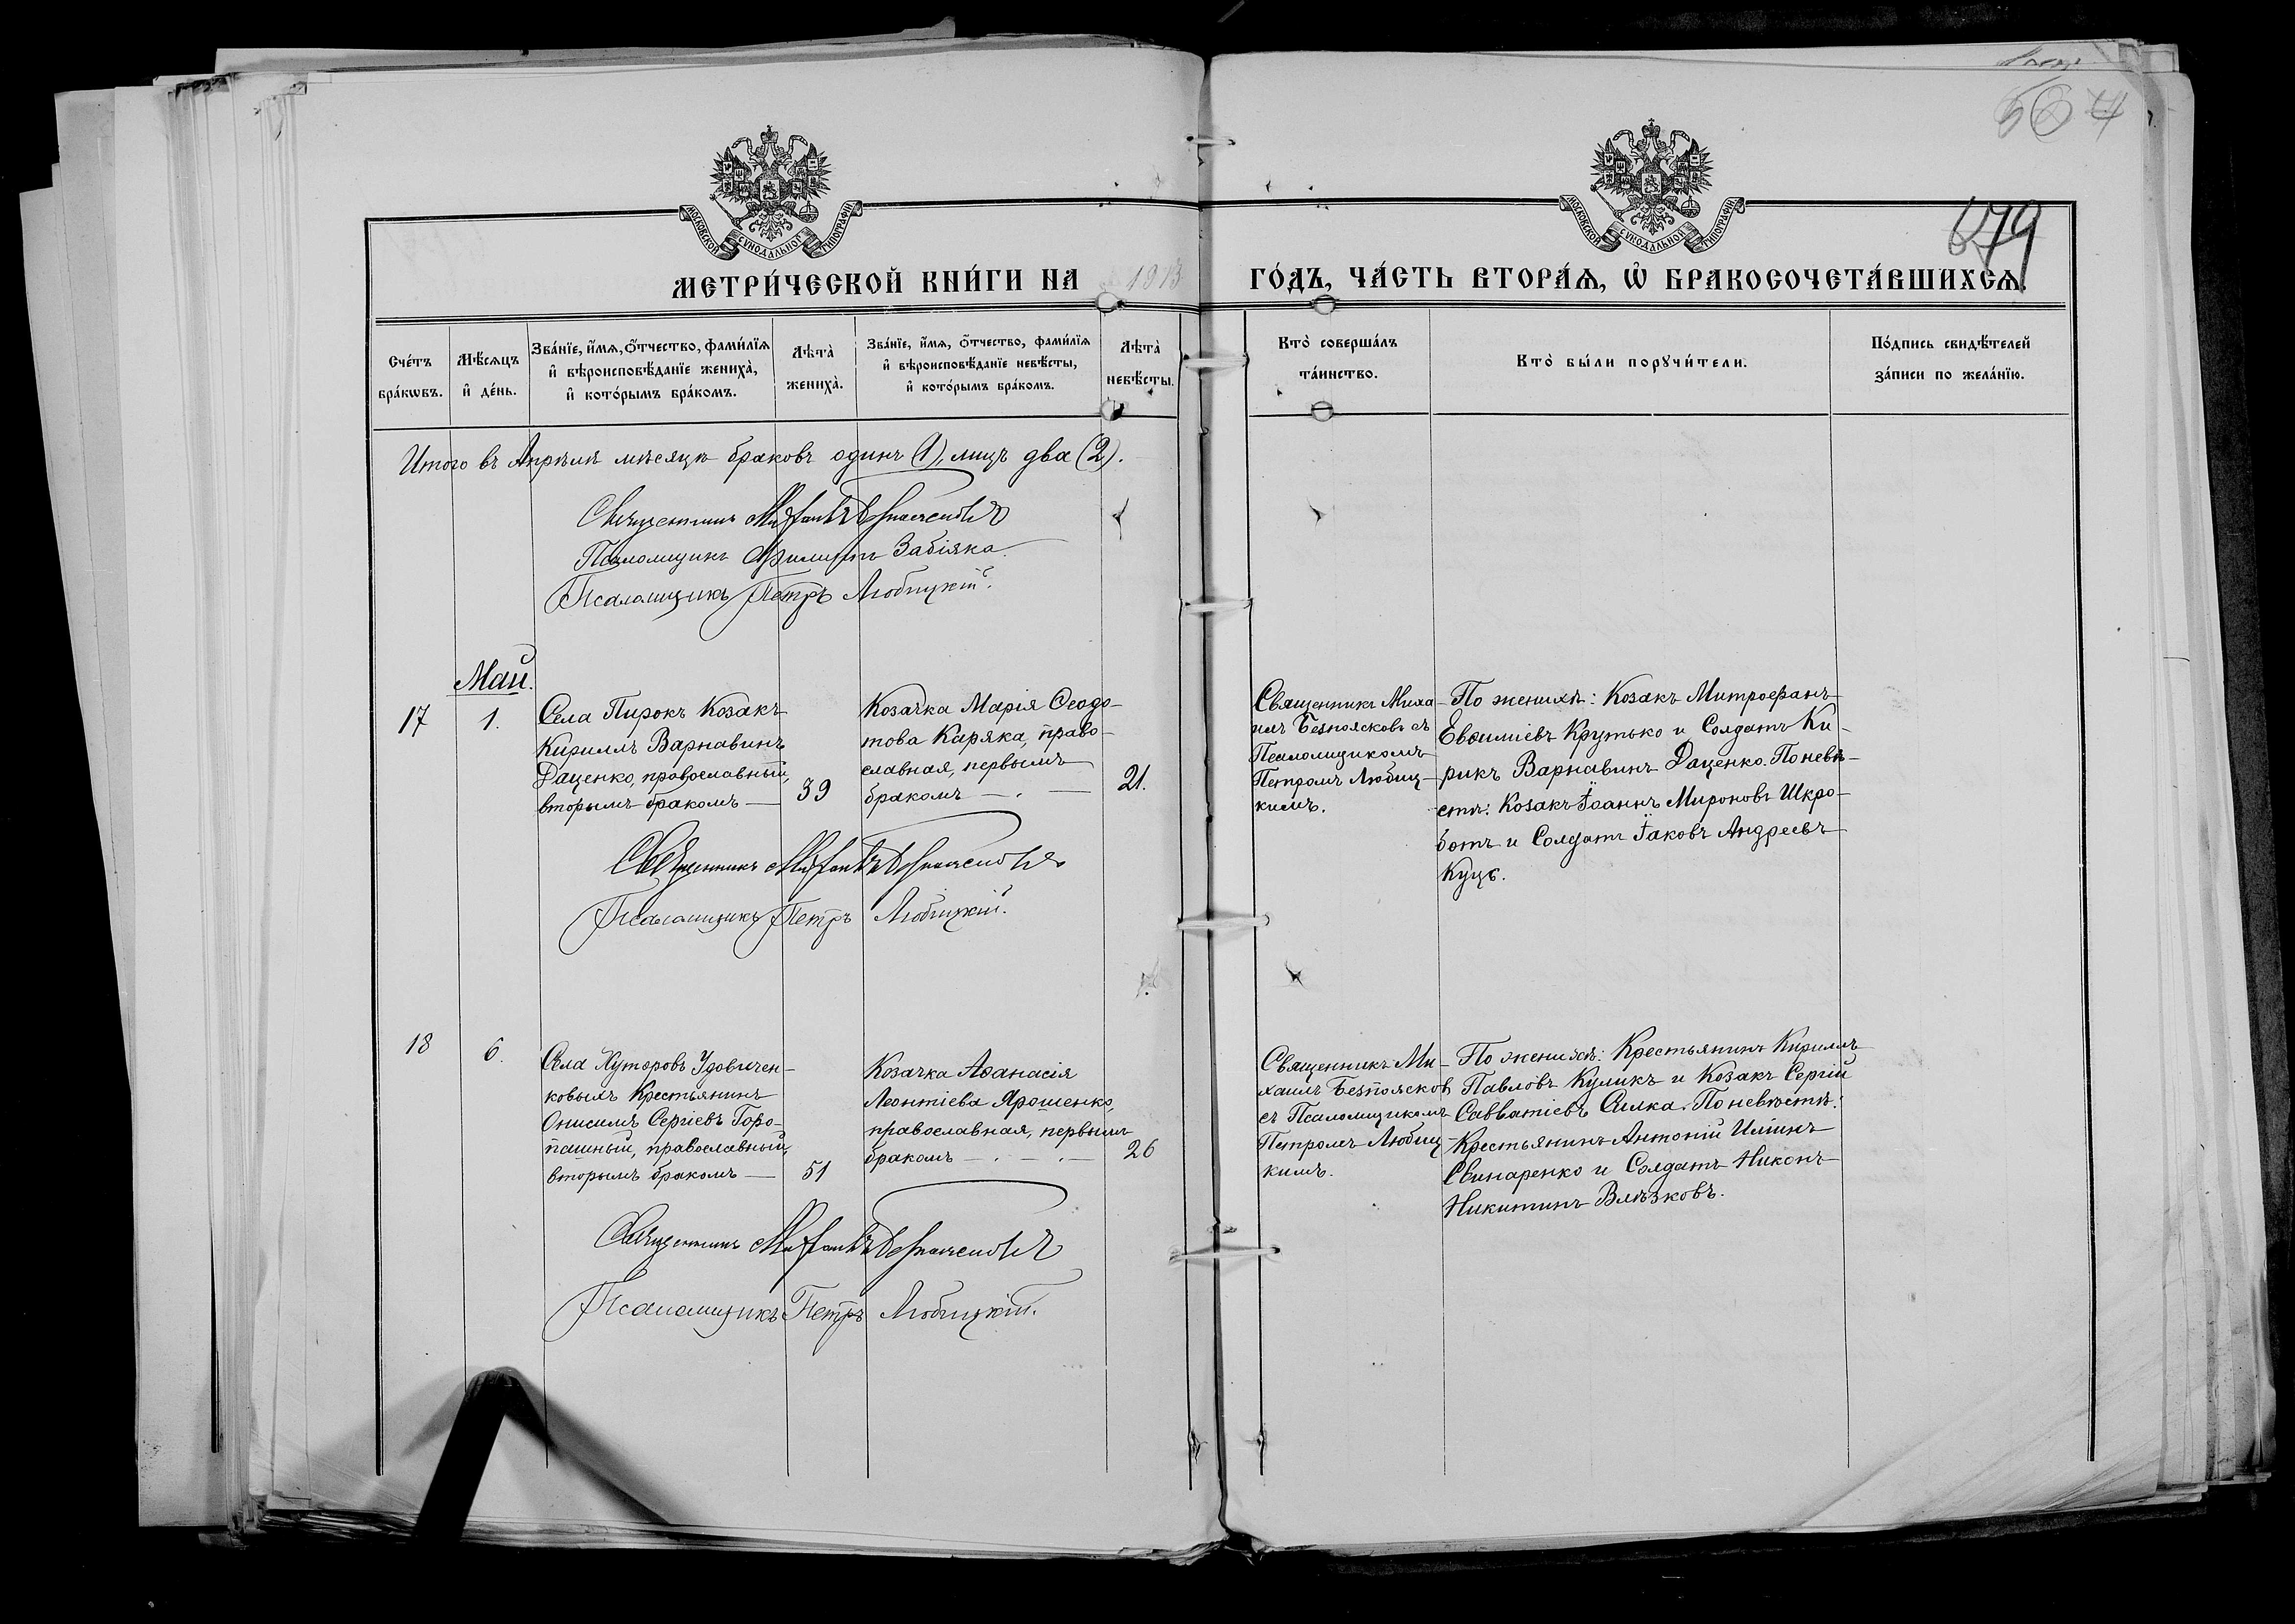 567
679
МОСКОВСКОЙ СѴНОДАЛЬНОЙ ТИПОГРАФІИ
МОСКОВСКОЙ СѴНОДАЛЬНОЙ ТИПОГРАФІИ
МЕТРИ́ЧЕСКОЙ КНИ́ГИ НА 1913 ГО́ДЪ, ЧА́СТЬ ВТОРА́Ѧ, Ѽ БРАКОСОЧЕТА́ВШИХСѦ.
Сче́тъ бра́кѡвъ.
Мѣ́сѧцъ и҆ де́нь.
Зва́нїе, и҆́мѧ, ѻ҆́тчество, фами́лїѧ
и҆ вѣроисповѣ́данїе жениха̀,
и҆ кото́рымъ бра́комъ.
Лѣта̀ жениха̀.
Зва́нїе, и҆́мѧ, ѻ҆́тчество, фами́лїѧ
и҆ вѣроисповѣ́данїе невѣ́сты,
и҆ кото́рымъ бра́комъ.
Лѣта̀ невѣ́сты.
Кто̀ соверша́лъ
та́инство.
Кто̀ бы́ли порꙋчи́тели.
По́дпись свидѣ́телей
за́писи по жела́нїю.
Итого въ Апрѣлѣ мѣсяцѣ браковъ одинъ (1), лицъ два (2).
Священникъ Михаилъ Безпоясковъ
Псаломщикъ Филиппъ Забіяка.
Псаломщикъ Петръ Любицкій.
Май.
17
1.
Села Пирокъ Козакъ
Кириллъ Варнавинъ
Даценко, православный,
вторымъ бракомъ —
39
Козачка Марія Ѳеодо-
това Каряка, право-
славная, первымъ
бракомъ — . —
21.
Священникъ Миха-
илъ Безпоясковъ съ
Псаломщикомъ
Петромъ Любиц-
кимъ.
По женихѣ: Козакъ Митрофанъ
Евѳиміевъ Крутько и Солдатъ Ки-
рикъ Варнавинъ Даценко. По невѣ-
стѣ: Козакъ Іоаннъ Мироновъ Шкро-
ботъ и Солдатъ Іаковъ Андреевъ
Куцъ.
Священникъ Михаилъ Безпоясковъ
Псаломщикъ Петръ Любицкій.
18
6.
Села Хуторовъ Удовичен-
ковыхъ Крестьянинъ
Онисимъ Сергіевъ Горо-
пашный, православный,
вторымъ бракомъ —
51
Козачка Аѳанасія
Леонтіева Ярошенко,
православная, первымъ
бракомъ — . — . —
26
Священникъ Ми-
хаилъ Безпоясковъ
съ Псаломщикомъ
Петромъ Любиц-
кимъ.
По женихѣ: Крестьянинъ Кириллъ
Павловъ Куликъ и Козакъ Сергій
Савватіевъ Силка. По невѣстѣ:
Крестьянинъ Антоній Иліинъ
Свинаренко и Солдатъ Никонъ
Никитинъ Влѣзковъ.
Священникъ Михаилъ Безпоясковъ
Псаломщикъ Петръ Любицкій.